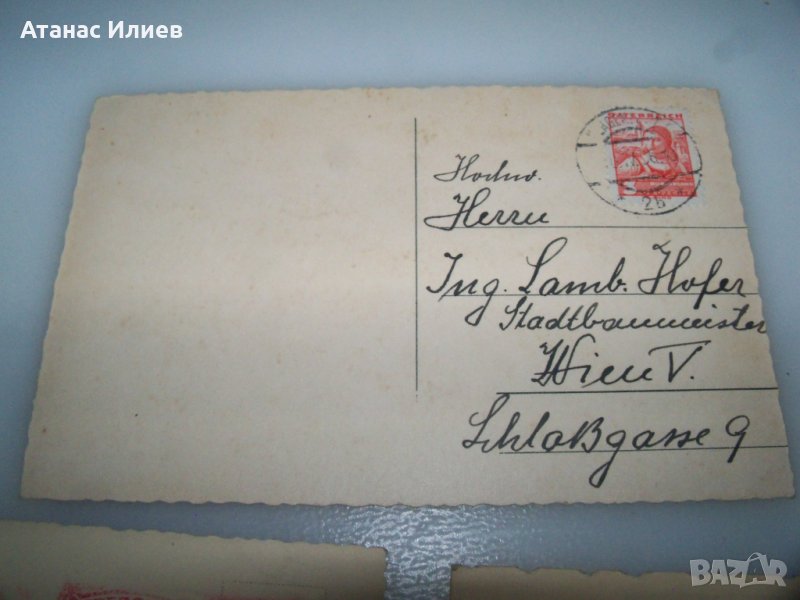 Атанас Илиев
ÖSTERREICH
Hochw.
Herrn
Ing. Lamb. Hofer
Stadtbaumeister
Wien V.
Schloßgasse 9
BAZAR